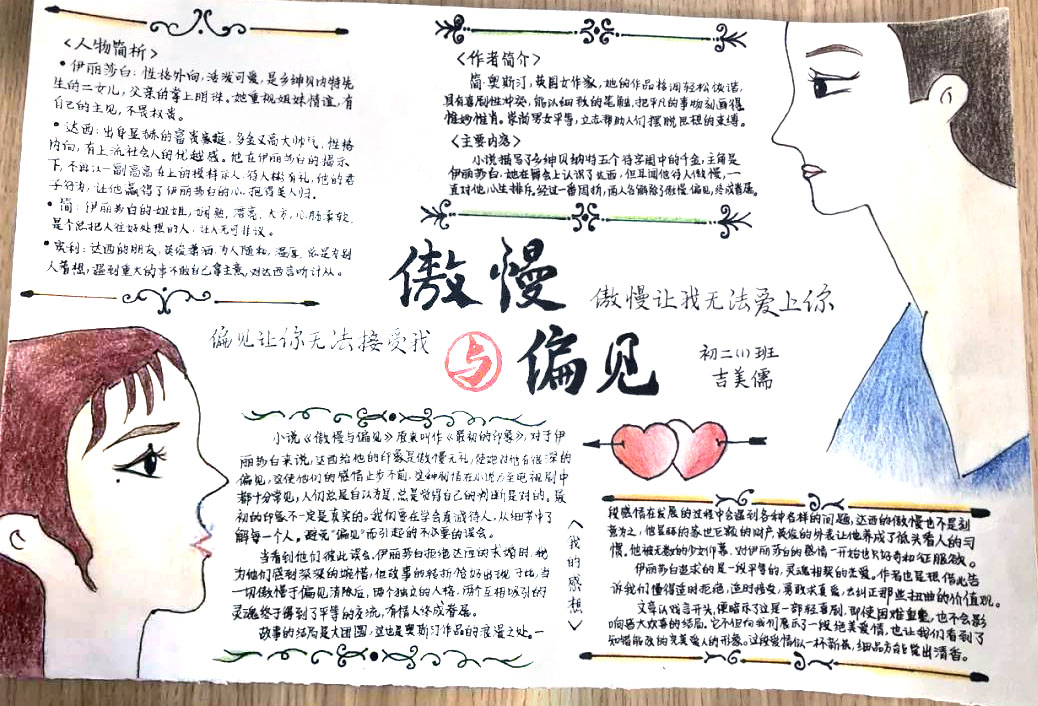 <人物简析>
•伊丽莎白：性格外向，活泼可爱，是乡绅贝内特先
生的二女儿，父亲的掌上明珠。她重视姐妹情谊，有
自己的主见，不畏权贵。
•达西：出身显赫的富贵家庭，多金又高大帅气，性格
内向，有上流社会人的优越感。他在伊丽莎白的提示
下，不再以一副高高在上的模样示人，待人彬彬有礼，他的君
子行为，让他赢得了伊丽莎白的心，抱得美人归。
•简：伊丽莎白的姐姐，娴熟，漂亮，大方，心肠柔软，
是个总把人往好处想的人，让人无可非议。
•宾利：达西的朋友，英俊潇洒，为人随和，温厚，总是为别
人着想，遇到重大的事不敢自己拿主意，对达西言听计从。
<作者简介>
简·奥斯汀，英国女作家，她的作品格调轻松诙谐，
具有喜剧性冲突，能以细致的笔触，把平凡的事物刻画得
惟妙惟肖。崇尚男女平等，立志帮助人们摆脱思想的束缚。
<主要内容>
小说描写了乡绅贝纳特五个待字闺中的千金，主角是
伊丽莎白，她在舞会上认识了达西，但耳闻他待人傲慢，一
直对他心生排斥。经过一番周折，两人各解除了傲慢偏见，终成眷属。
傲慢
傲慢让我无法爱上你
偏见让你无法接受我
与
偏见
初二(1)班
吉美儒
小说《傲慢与偏见》原来叫作《最初的印象》，对于伊
丽莎白来说，达西给他的印象是傲慢无礼，使她对他有很深的
偏见，这使他们的感情止步不前。这种剧情在小说乃至电视剧中
都十分常见，人们总是自以为是，总是觉得自己的判断是对的。最
初的印象不一定是真实的。我们要在学会真诚待人，从细节中了
解每一个人。避免“偏见”而引起的不必要的误会。
当看到他们彼此误会，伊丽莎白拒绝达西的求婚时，我
为他们感到深深的惋惜，但故事的转折恰好出现于此，当
一切傲慢于偏见清除后，两个独立的人格，两个互相吸引的
灵魂终于得到了平等的交流，有情人终成眷属。
故事的结局是大团圆，这也是奥斯汀作品的浪漫之处。一
<我的感想>
段感情在发展的过程中会遇到各种各样的问题，达西的傲慢也不是刻
意为之，他显赫的家世巨额的财产，英俊的外表让他养成了低头看人的习
惯。他被无数的少女仰慕，对伊丽莎白的感情一开始也只好奇和征服欲。
伊丽莎白追求的是一段平等的，灵魂相契的恋爱。作者也是想借此告
诉我们懂得适时拒绝，适时接受，勇敢求真爱，去纠正那些扭曲的价值观。
文章以戏言开头，便暗示了这是一部轻喜剧，即使困难重重，也不会影
响皆大欢喜的结局。它不但向我们展示了一段绝美爱情，也让我们看到了
知错能改的完美爱人的形象。这段爱情似一杯新茶，细品方能觉出清香。